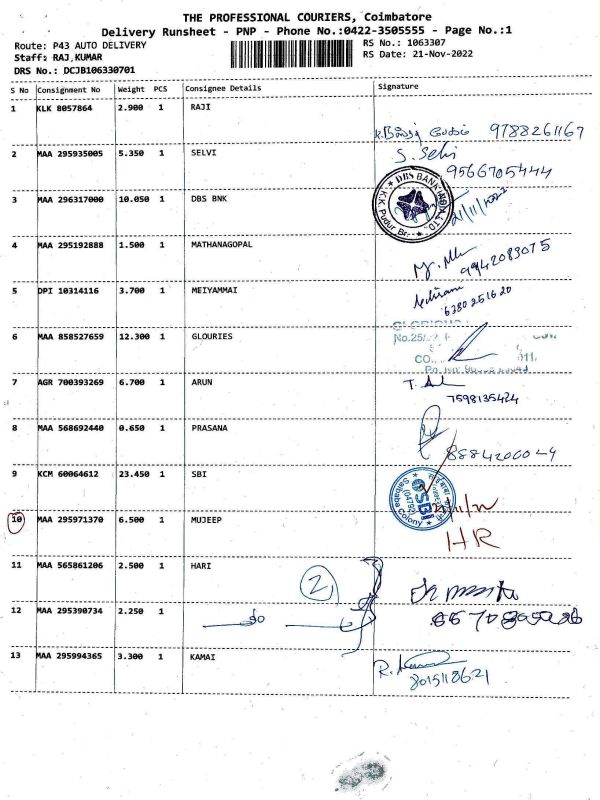 THE PROFESSIONAL COURIERS, Coimbatore
Delivery Runsheet - PNP - Phone No.:0422-3505555 - Page No.:1
Route: P43 AUTO DELIVERY RS No.: 1063307
Staff: RAJ,KUMAR RS Date: 21-Nov-2022
DRS No.: DCJB106330701
S No Consignment No Weight PCS Consignee Details Signature
1 KLK 8057864 2.900 1 RAJI
9788261167
2 MAA 295935005 5.350 1 SELVI S. Selvi
9566705444
3 MAA 296317000 10.050 1 DBS BNK DBS BANK K.K. Pudur Br. 21/11/2022
4 MAA 295192888 1.500 1 MATHANAGOPAL
9942083075
5 DPI 10314116 3.700 1 MEIYAMMAI
6380251620
6 MAA 858527659 12.300 1 GLOURIES
7 AGR 700393269 6.700 1 ARUN
7598135424
8 MAA 568692440 0.650 1 PRASANA
9 KCM 60064612 23.450 1 SBI SBI Saibaba Colony
10 MAA 295971370 6.500 1 MUJEEP HR
11 MAA 565861206 2.500 1 HARI 2
12 MAA 295390734 2.250 1 do
13 MAA 295994365 3.300 1 KAMAI
8015118621